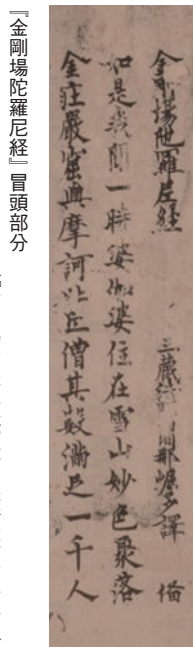 金剛場陀羅尼經 三藏 闍那崛多譯
如是我聞一時婆伽婆住在雪山妙色聚落
金莊嚴窟與摩訶比丘僧其數滿足一千人
『金剛場陀羅尼経』冒頭部分